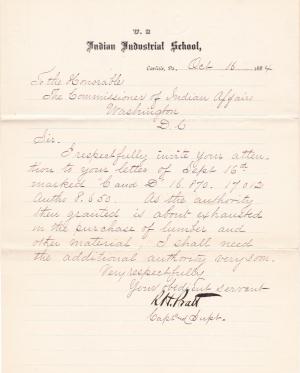 U. S
Indian Industrial School,
Carlisle, Pa., Oct 16 1884
To the Honorable
The Commissioner of Indian Affairs
Washington
D. C
Sir:
I respectfully invite your atten-
tion to your letter of Sept 16th
marked "C and D" 16.870. 17.012
Autho 8.650. As the authority
then granted is about exhausted
in the purchase of lumber and
other material, I shall need
the additional authority very soon.
Very respectfully
Your obedient servant
R. H. Pratt
Capt & Supt.